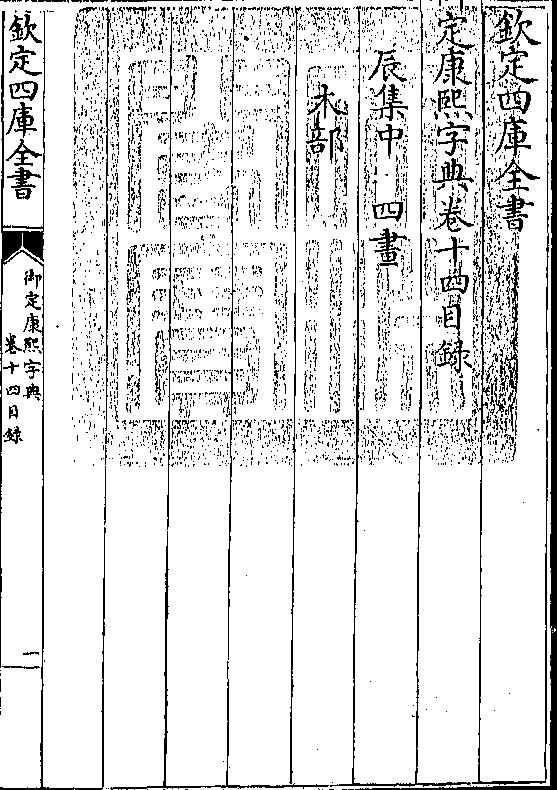 欽定四庫全書
定康熙字典卷十四目録
辰集中 四畫
木部
欽定四庫全書
御定康熙字典
卷十四目録
一